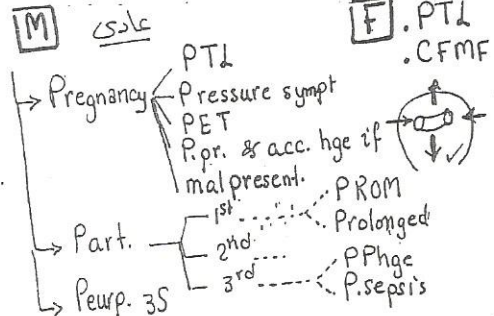 M عادى
F . PTL
. CFMF
→ Pregnancy
PTL
Pressure sympt
PET
P.pr. & acc. hge if
malpresent.
→ Part.
1st
PROM
Prolonged
2nd
3rd
PPhge
P.sepsis
→ Peurp. 3S